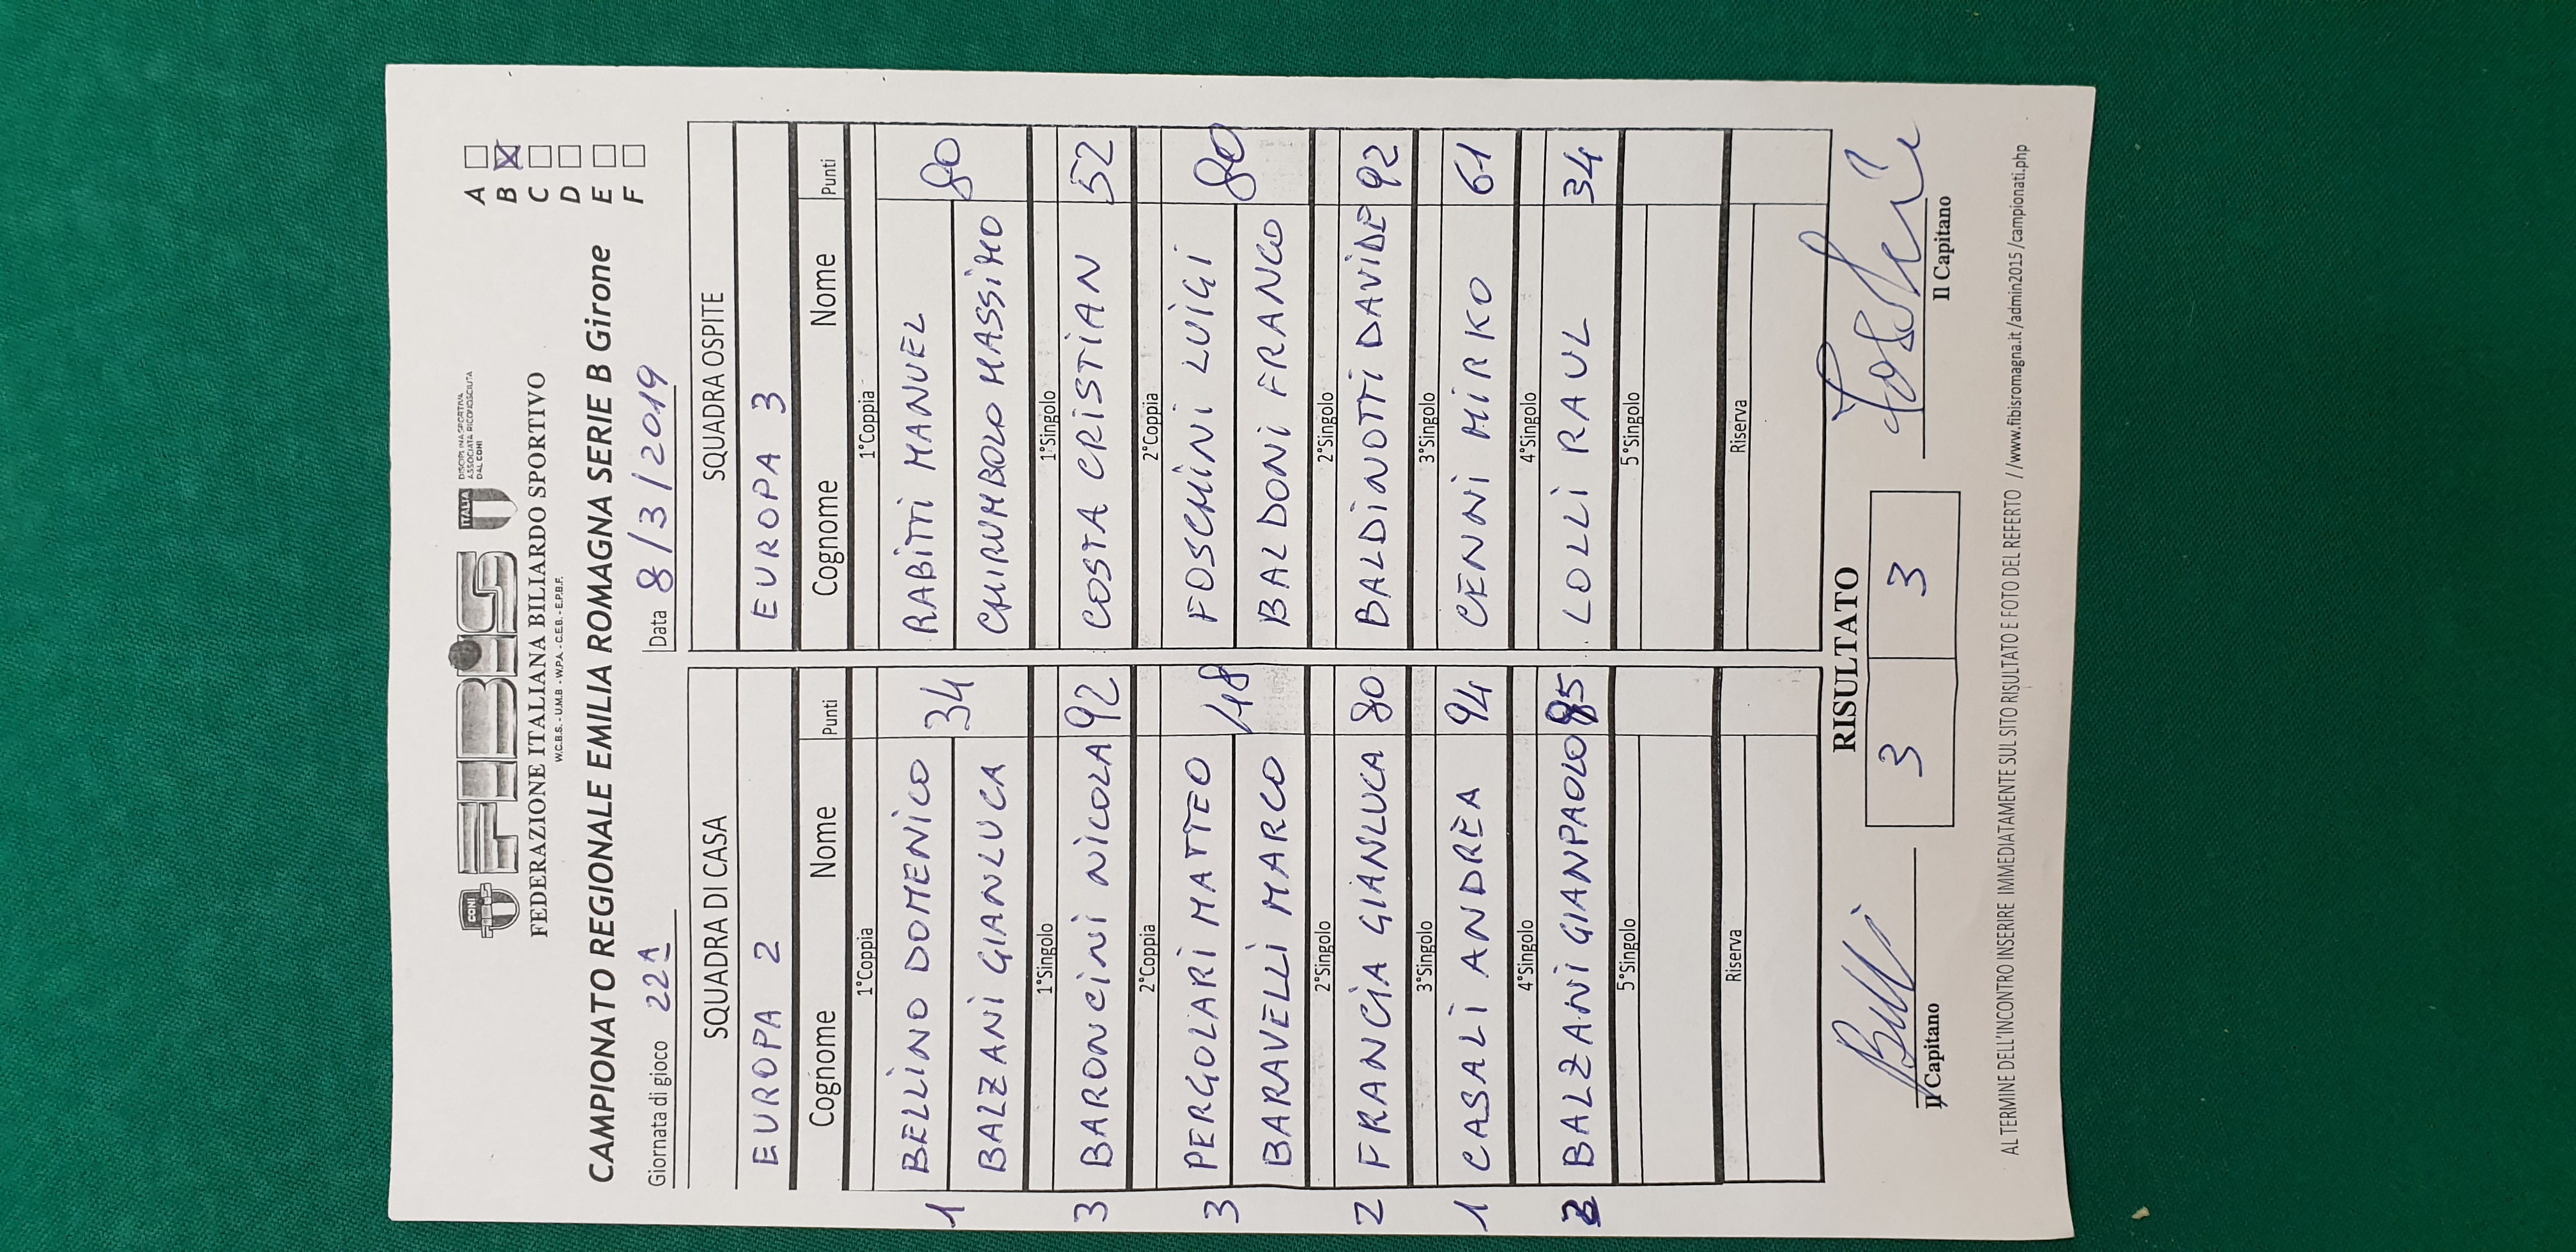 CONI
FEBIS
ITALIA
DISCIPLINA SPORTIVA
ASSOCIATA RICONOSCIUTA
DAL CONI
FEDERAZIONE ITALIANA BILIARDO SPORTIVO
W.C.B.S. - U.M.B - W.P.A. - C.E.B. - E.P.B.F.
CAMPIONATO REGIONALE EMILIA ROMAGNA SERIE B Girone
A
B
C
D
E
F
Giornata di gioco 22A Data 8/3/2019
SQUADRA DI CASA SQUADRA OSPITE
EUROPA 2 EUROPA 3
Cognome Nome Punti Cognome Nome Punti
1°Coppia 1°Coppia
1 BELLINO DOMENICO 34 RABITTI MANUEL 80
BALZANI GIANLUCA CHIRUMBOLO MASSIMO
1°Singolo 1°Singolo
3 BARONCINI NICOLA 92 COSTA CRISTIAN 52
2°Coppia 2°Coppia
3 PERGOLARI MATTEO 48 FOSCHINI LUIGI 80
BARAVELLI MARCO BALDONI FRANCO
2°Singolo 2°Singolo
2 FRANCIA GIANLUCA 80 BALDINOTTI DAVIDE 92
3°Singolo 3°Singolo
1 CASALI ANDREA 94 CENNI MIRKO 61
4°Singolo 4°Singolo
2 BALZANI GIANPAOLO 85 LOLLI RAUL 34
5°Singolo 5°Singolo
Riserva Riserva
RISULTATO
3 3
Il Capitano Il Capitano
AL TERMINE DELL'INCONTRO INSERIRE IMMEDIATAMENTE SUL SITO RISULTATO E FOTO DEL REFERTO //www.fibisromagna.it/admin2015/campionati.php